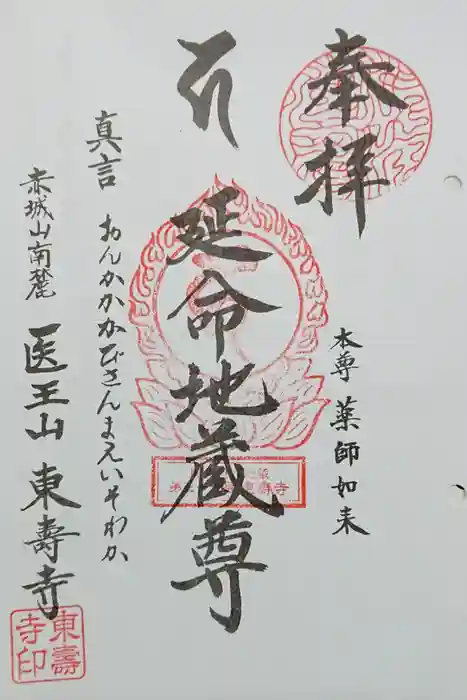 奉拝
本尊 薬師如来
延命地蔵尊
真言 おんかかかびさんまえいそわか
赤城山南麓 医王山 東壽寺
東壽寺印